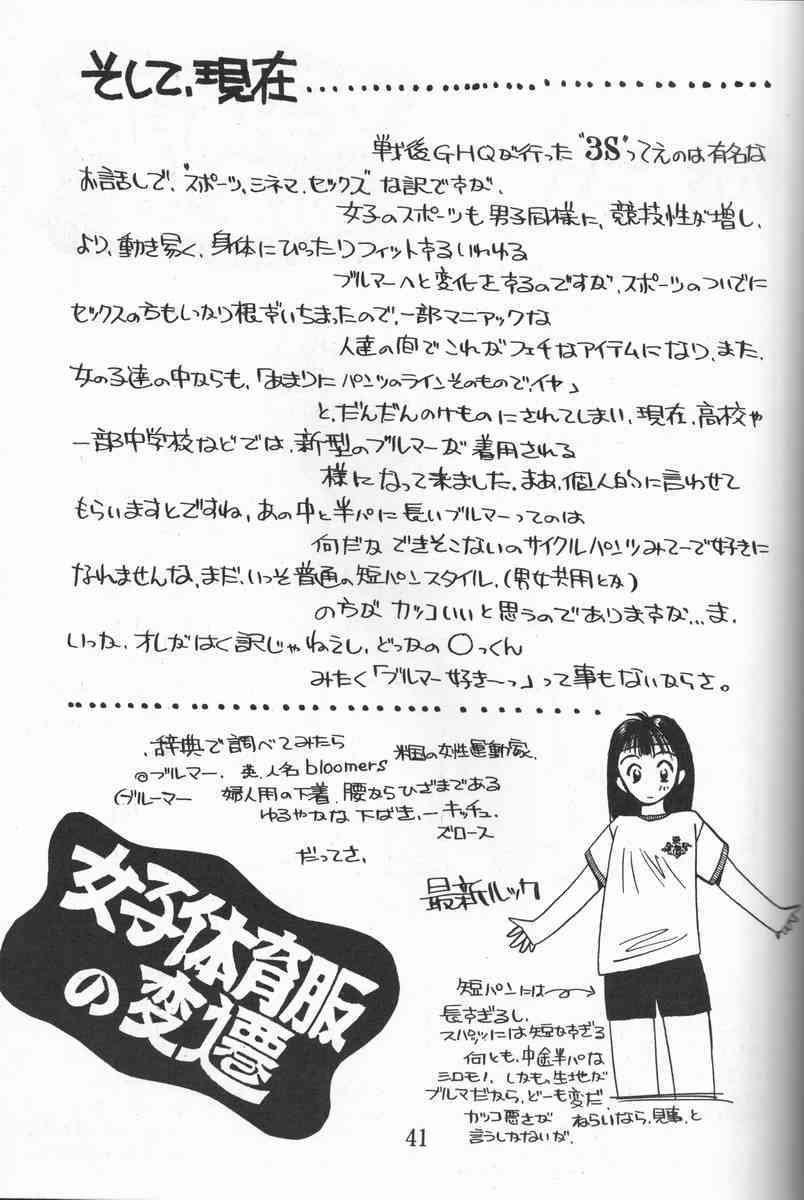 そして、現在
戦後GHQが行った“3S”ってえのは有名な
お話しで、“スポーツ、シネマ、セックス”な訳ですが、
女子のスポーツも男子同様に、競技性が増し、
より、動き易く、身体にぴったりフィットするいわゆる
ブルマーへと変化をするのですが、スポーツのついでに
セックスの方もしっかり根づいちまったので、一部マニアックな
人達の間でこれがフェチなアイテムになり、また、
女の子達の中からも、「あまりにパンツのラインそのものでイヤ」
と、だんだんのけものにされてしまい、現在、高校や
一部中学校などでは、新型のブルマーが着用される
様になって来ました。まあ、個人的に言わせて
もらいますとですね、あの中と半パに長いブルマーってのは
何だか できそこないのサイクルパンツみてーで好きに
なれませんな、まだ、いっそ普通の短パンスタイル、(男女共用とか)
の方が カッコいいと思うのでありますが…ま、
いっか、オレがはく訳じゃねえし、どっかの〇っくん
みたく「ブルマー好き〜っ」って事もないからさ。
辞典で調べてみたら
◎ブルマー、英、人名 bloomers 米国の女性運動家、
(ブルーマー 婦人用の下着、腰からひざまである
ゆるやかな下ばき、― キッチュ
ズロース
だってさ、
女子体育服
の変遷
最新ルック
短パンには
長すぎるし、
スパッツには短かすぎる
何とも、中途半パな
シロモノ、しかも、生地が
ブルマだから、どーも変だ、
カッコ悪さが ねらいなら、見事、と
言うしかないが、
41